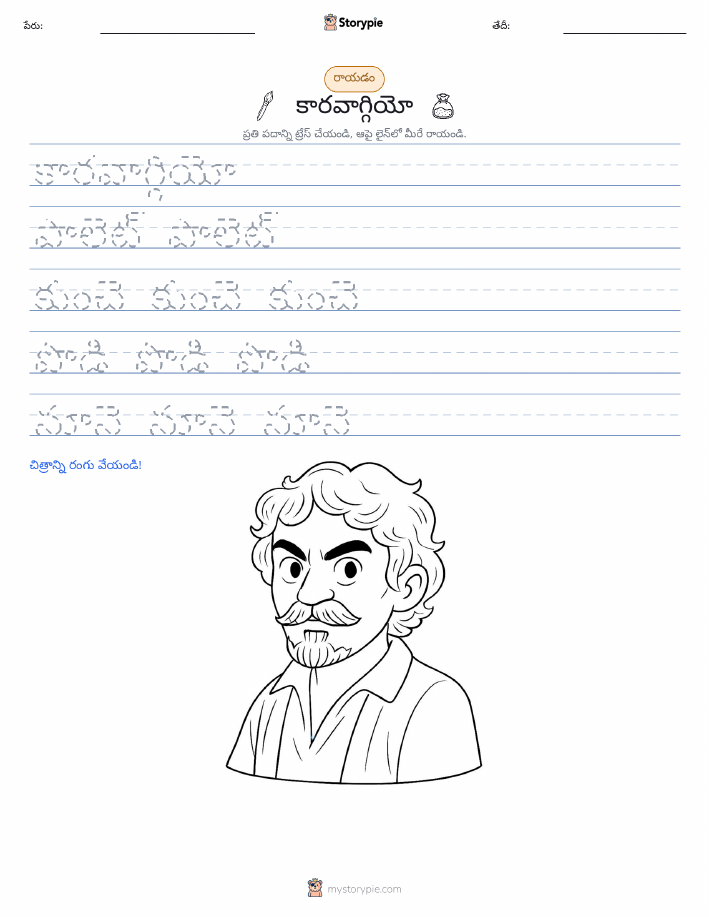 పేరు:
Storypie
తేదీ:
రాయడం
కారవాగ్గియో
ప్రతి పదాన్ని ట్రేస్ చేయండి, ఆపై లైన్‌లో మీరే రాయండి.
కారవాగ్గియో
పాలెట్ పాలెట్
కుంచె కుంచె కుంచె
పొడి పొడి పొడి
నూనె నూనె నూనె
చిత్రాన్ని రంగు వేయండి!
mystorypie.com